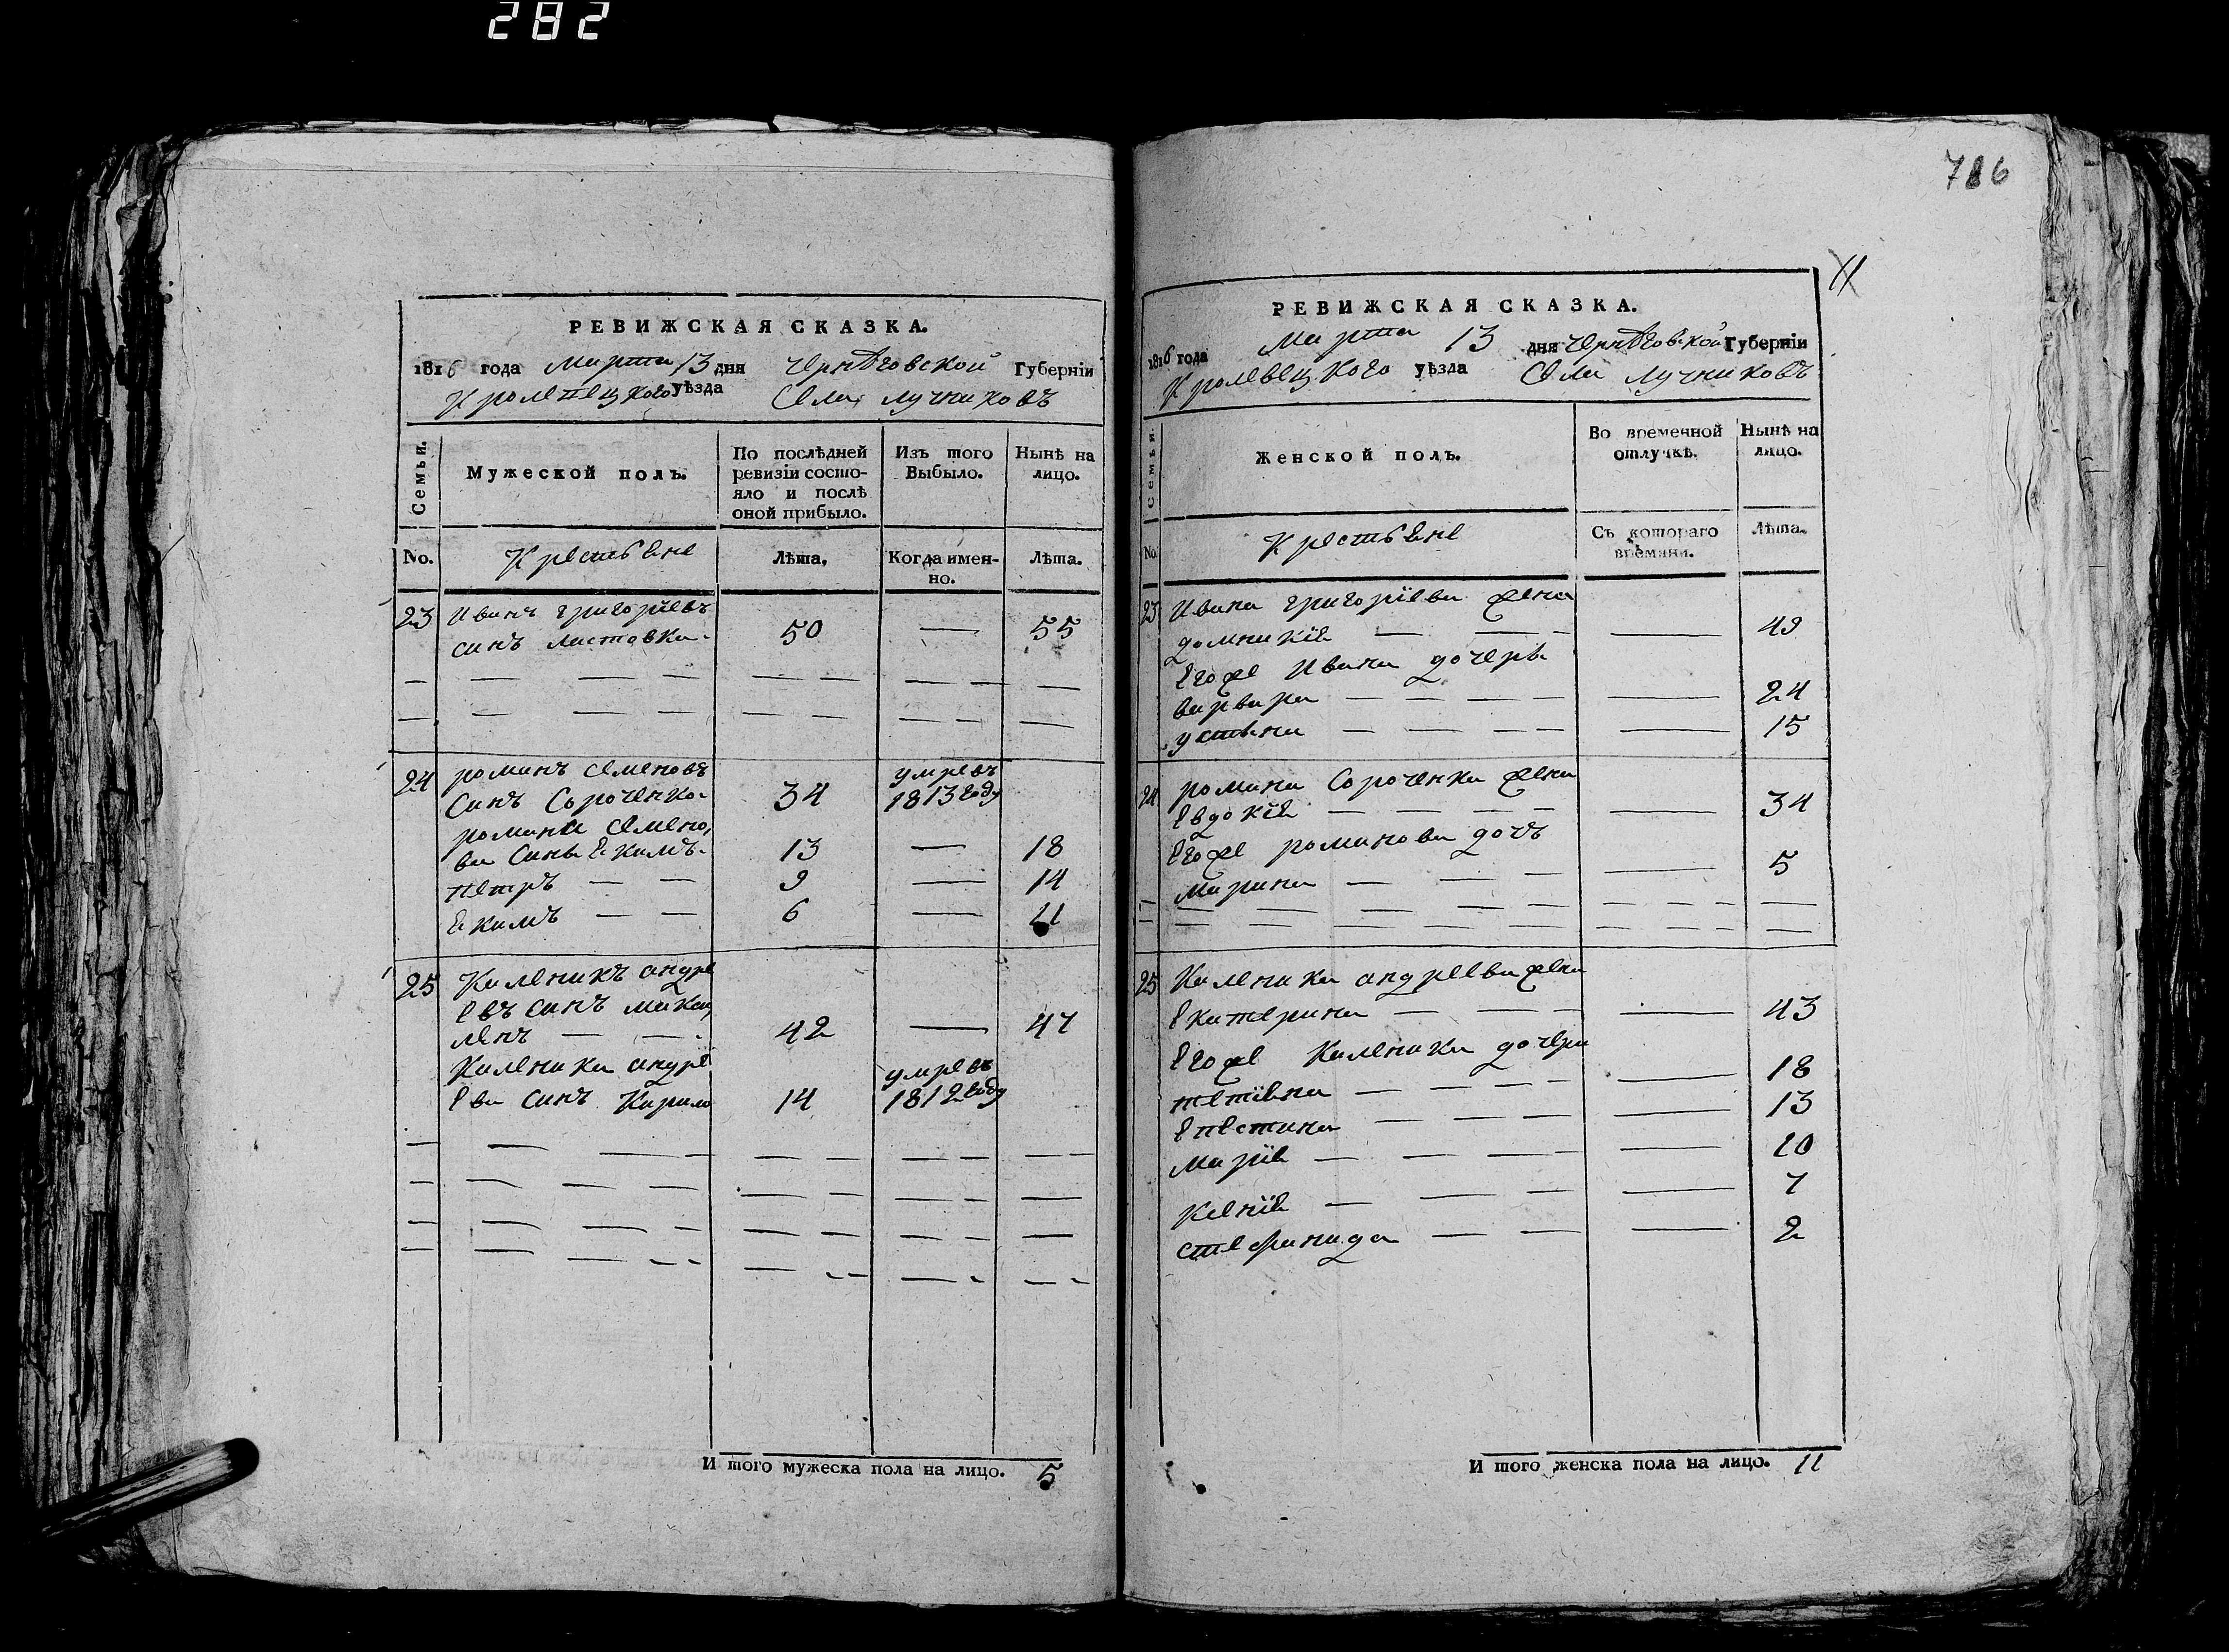 282
786
РЕВИЖСКАЯ СКАЗКА.
1816 года Марта 13 дня Чернѣговской Губерніи
Кролевецкого уѣзда Села Лучниковъ
Семьи.
Мужеской полъ.
По послѣдней ревизіи состояло и послѣ оной прибыло.
Изъ того Выбыло.
Нынѣ на лицо.
No.
Крестьяне
Лѣта.
Когда именно.
Лѣта.
23 Иванъ григорїевъ
синъ Листовка 50 — 55
24 романъ Семеновъ умревъ
Синъ Сороченко 34 1813 году
романа Семено
ва Сины Екимъ 13 — 18
петръ — — 9 — 14
Екимъ — — 6 — 11
25 Каленикъ андре
евъ синъ
ленъ — — 42 — 47
Каленика андре умревъ
ева синъ Кирило 14 1812 году
И того мужеска пола на лицо. 5
11
РЕВИЖСКАЯ СКАЗКА.
1816 года Марта 13 дня Чернѣговской Губерніи
Кролевецкого уѣзда Села Лучниковъ
Семьи.
Женской полъ.
Во временной отлучкѣ.
Нынѣ на лицо.
No.
Крестьяне
Съ котораго времяни.
Лѣта.
23 Ивана григорїева жена
домникїя — — — — 49
Егоже Ивана дочеры
варвара — — — — 24
устяна — — — — 15
24 романа Сороченка жена
Евдокїя — — — — 34
Егоже романова дочъ
марина — — — — 5
25 Каленика андреева жена
Екатерина — — — — 43
Егоже Каленика дочери
тетїяна — — — — 18
13
марїя — — — — 10
ксенїя — — — — 7
2
И того женска пола на лицо. 11